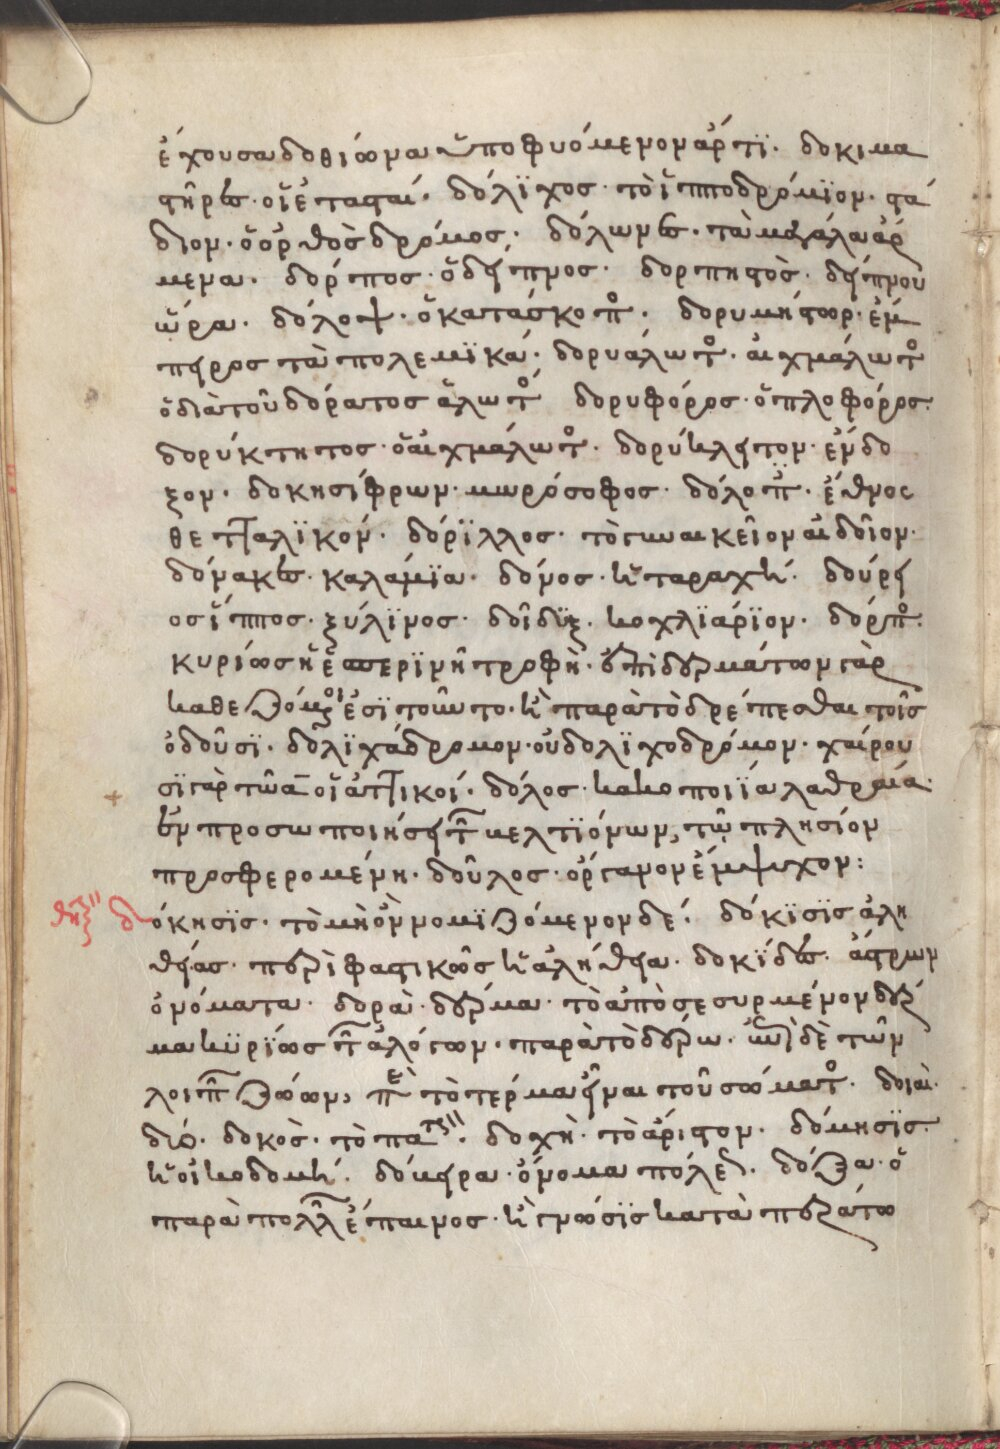 ἔχουσα δοθιῶνα ὑποφυόμενον ἄρτϊ. δοκιμα
στῆρες. οἱ ἐτασταί. δόλϊχος. τὸ ἱπποδρόμϊον. στά
διον. ὁ ὀρθὸς δρόμος. δόλωνες. τὰ μεγάλα ἄρ
μενα. δόρπος. ὁ δεῖπνος. δορπηστὸς. δείπνου
ὥρα. δόλοψ. ὁ κατάσκοπος. δορυμήστωρ. ἔμ
πειρος τὰ πολεμϊκά. δορυάλωτος. αἰχμάλωτος
ὁ διὰ τοῦ δόρατος ἁλωτός δορυφόρος. ὁπλοφόρος.
δορύκτητος. ὁ αἰχμάλωτος. δορύκλειτον. ἔνδο
ξον. δοκησίφρων. μωρόσοφος. δόλοπες. ἔθνος
θετταλϊκόν. δόρϊλλος. τὸ γυναικεῖον αἰδοῖον.
δόνακες. καλάμϊα. δόνος. ἡ ταραχή. δούρει
ος ἵππος. ξύλϊνος. δοῖδϋξ. κοχλϊάρϊον. δόρπος.
κυρίως ἡ ἑσπερϊνὴ τροφὴ. ἐπὶ δερμάτων γὰρ
καθεζόμενοι ἐσϊτοῦντο. ἢ παρὰ τὸ δρέπεσθαι τοῖς
ὀδοῦσϊ. δολϊχάδρομον. οὐ δολϊχοδρόμον. χαίρου
σϊ γὰρ τῶ α οἱ ἀττικοί. δόλος. κακοποιΐα λαθραία.
ἐν προσωποιήσει τῶν βελτϊόνων, τῷ πλησίον
προσφερομένη. δοῦλος. ὄργανον ἔμψυχον:
δόκησϊς. τὸ μὴ ὂν νομϊζόμενον δέ. δόκϊσϊς ἀλη
θείας. περϊφραστικῶς ἡ ἀλήθεια. δοκίδες. ἄστρων
ὀνόματα. δορὰ. δέρμα. τὸ ἀπὸσεσυρμένον δέρ
μα κϋρϊως τῶν ἀλόγων. παρὰ τὸ δέρω. ἐπὶ δὲ τῶν
λοιπῶν ζώων, παρὰ τὸ τέρμα εἶναι τοῦ σώματος. δοιαὶ.
δύο. δοκὸς. τὸ πα. δοχὴ. τὸ ἄριστον. δόμησϊς.
ἡ οἰκοδομή. ὄνομα πόλεως. δόξα. ὁ
παρὰ πολλῶν ἔπαινος. ἢ γνώσϊς κατὰ